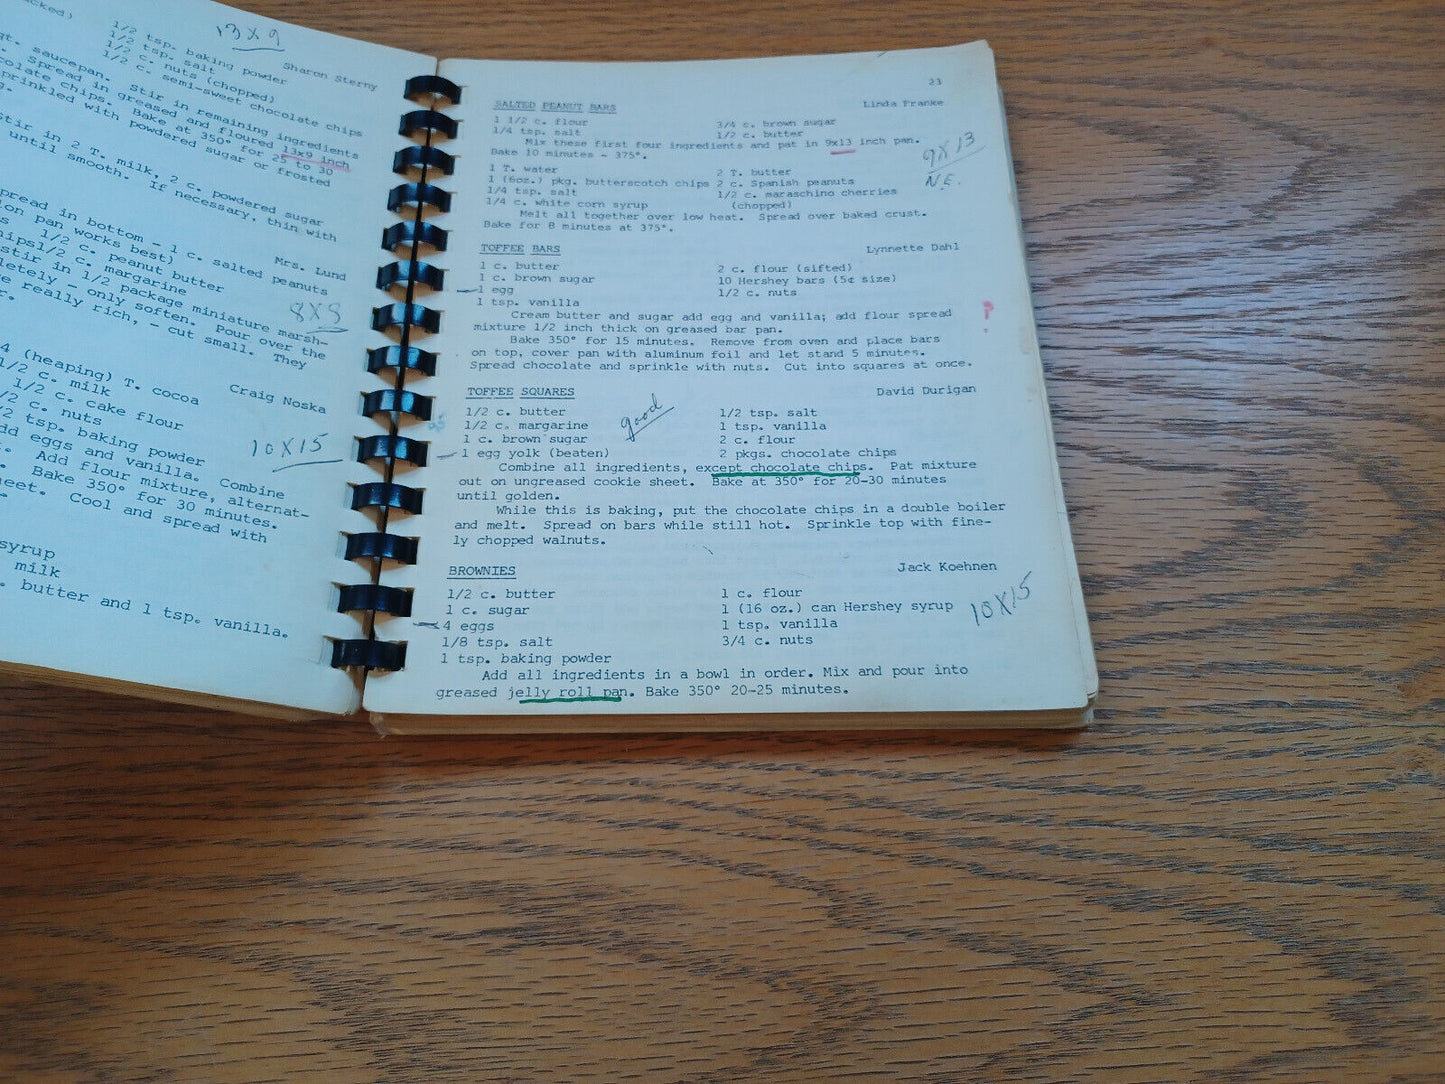 13 x 9
1/2 tsp. baking powder
1/2 tsp. salt
1/2 c. nuts (chopped)
1/2 c. semi-sweet chocolate chips
Sharon Sterny
qt. saucepan. Stir in remaining ingredients
. Spread in greased and floured 13x9 inch
colate chips. Bake at 350° for 25 to 30
sprinkled with powdered sugar or frosted
g.
Stir in 2 T. milk, 2 c. powdered sugar
until smooth. If necessary, thin with
Mrs. Lund
spread in bottom - 1 c. salted peanuts
ion pan works best)
1/2 c. peanut butter
hips1/2 c. margarine
stir in 1/2 package miniature marsh-
pletely - only soften. Pour over the
e really rich, - cut small. They
r.
8X8
4 (heaping) T. cocoa
1/2 c. milk
1/2 c. cake flour
1/2 c. nuts
1/2 tsp. baking powder
Craig Noska
add eggs and vanilla. Combine
. Add flour mixture, alternat-
. Bake 350° for 30 minutes.
heet. Cool and spread with
10X15
syrup
milk
. butter and 1 tsp. vanilla.
23
SALTED PEANUT BARS Linda Franke
1 1/2 c. flour 3/4 c. brown sugar
1/4 tsp. salt 1/2 c. butter
Mix these first four ingredients and pat in 9x13 inch pan.
Bake 10 minutes - 375°.
9X13
N.E.
1 T. water 2 T. butter
1 (6oz.) pkg. butterscotch chips 2 c. Spanish peanuts
1/4 tsp. salt 1/2 c. maraschino cherries
1/4 c. white corn syrup (chopped)
Melt all together over low heat. Spread over baked crust.
Bake for 8 minutes at 375°.
TOFFEE BARS Lynnette Dahl
1 c. butter 2 c. flour (sifted)
1 c. brown sugar 10 Hershey bars (5¢ size)
1 egg 1/2 c. nuts
1 tsp. vanilla
Cream butter and sugar add egg and vanilla; add flour spread
mixture 1/2 inch thick on greased bar pan.
?
Bake 350° for 15 minutes. Remove from oven and place bars
on top, cover pan with aluminum foil and let stand 5 minutes.
Spread chocolate and sprinkle with nuts. Cut into squares at once.
TOFFEE SQUARES David Durigan
1/2 c. butter 1/2 tsp. salt
1/2 c. margarine good 1 tsp. vanilla
1 c. brown sugar 2 c. flour
1 egg yolk (beaten) 2 pkgs. chocolate chips
Combine all ingredients, except chocolate chips. Pat mixture
out on ungreased cookie sheet. Bake at 350° for 20-30 minutes
until golden.
While this is baking, put the chocolate chips in a double boiler
and melt. Spread on bars while still hot. Sprinkle top with fine-
ly chopped walnuts.
BROWNIES Jack Koehnen
1/2 c. butter 1 c. flour
1 c. sugar 1 (16 oz.) can Hershey syrup 10X15
4 eggs 1 tsp. vanilla
1/8 tsp. salt 3/4 c. nuts
1 tsp. baking powder
Add all ingredients in a bowl in order. Mix and pour into
greased jelly roll pan. Bake 350° 20-25 minutes.